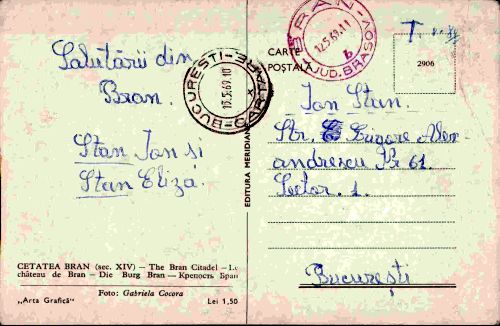 Salutări din
Bran.
Stan Ion și
Stan Eliza.
CETATEA BRAN (sec. XIV) – The Bran Citadel – Le
château de Bran – Die Burg Bran – Крепость Бран
Foto: Gabriela Cocora
„Arta Grafică” Lei 1,50
EDITURA MERIDIANE
BUCUREȘTI
13.5.69.10
BRAN
12.5.69.11
b
JUD. BRAȘOV
CARTE
POȘTALĂ
T
2906
Ion Stan.
Str. Grigore Alex-
andrescu Nr 61.
Sector. 1.
București